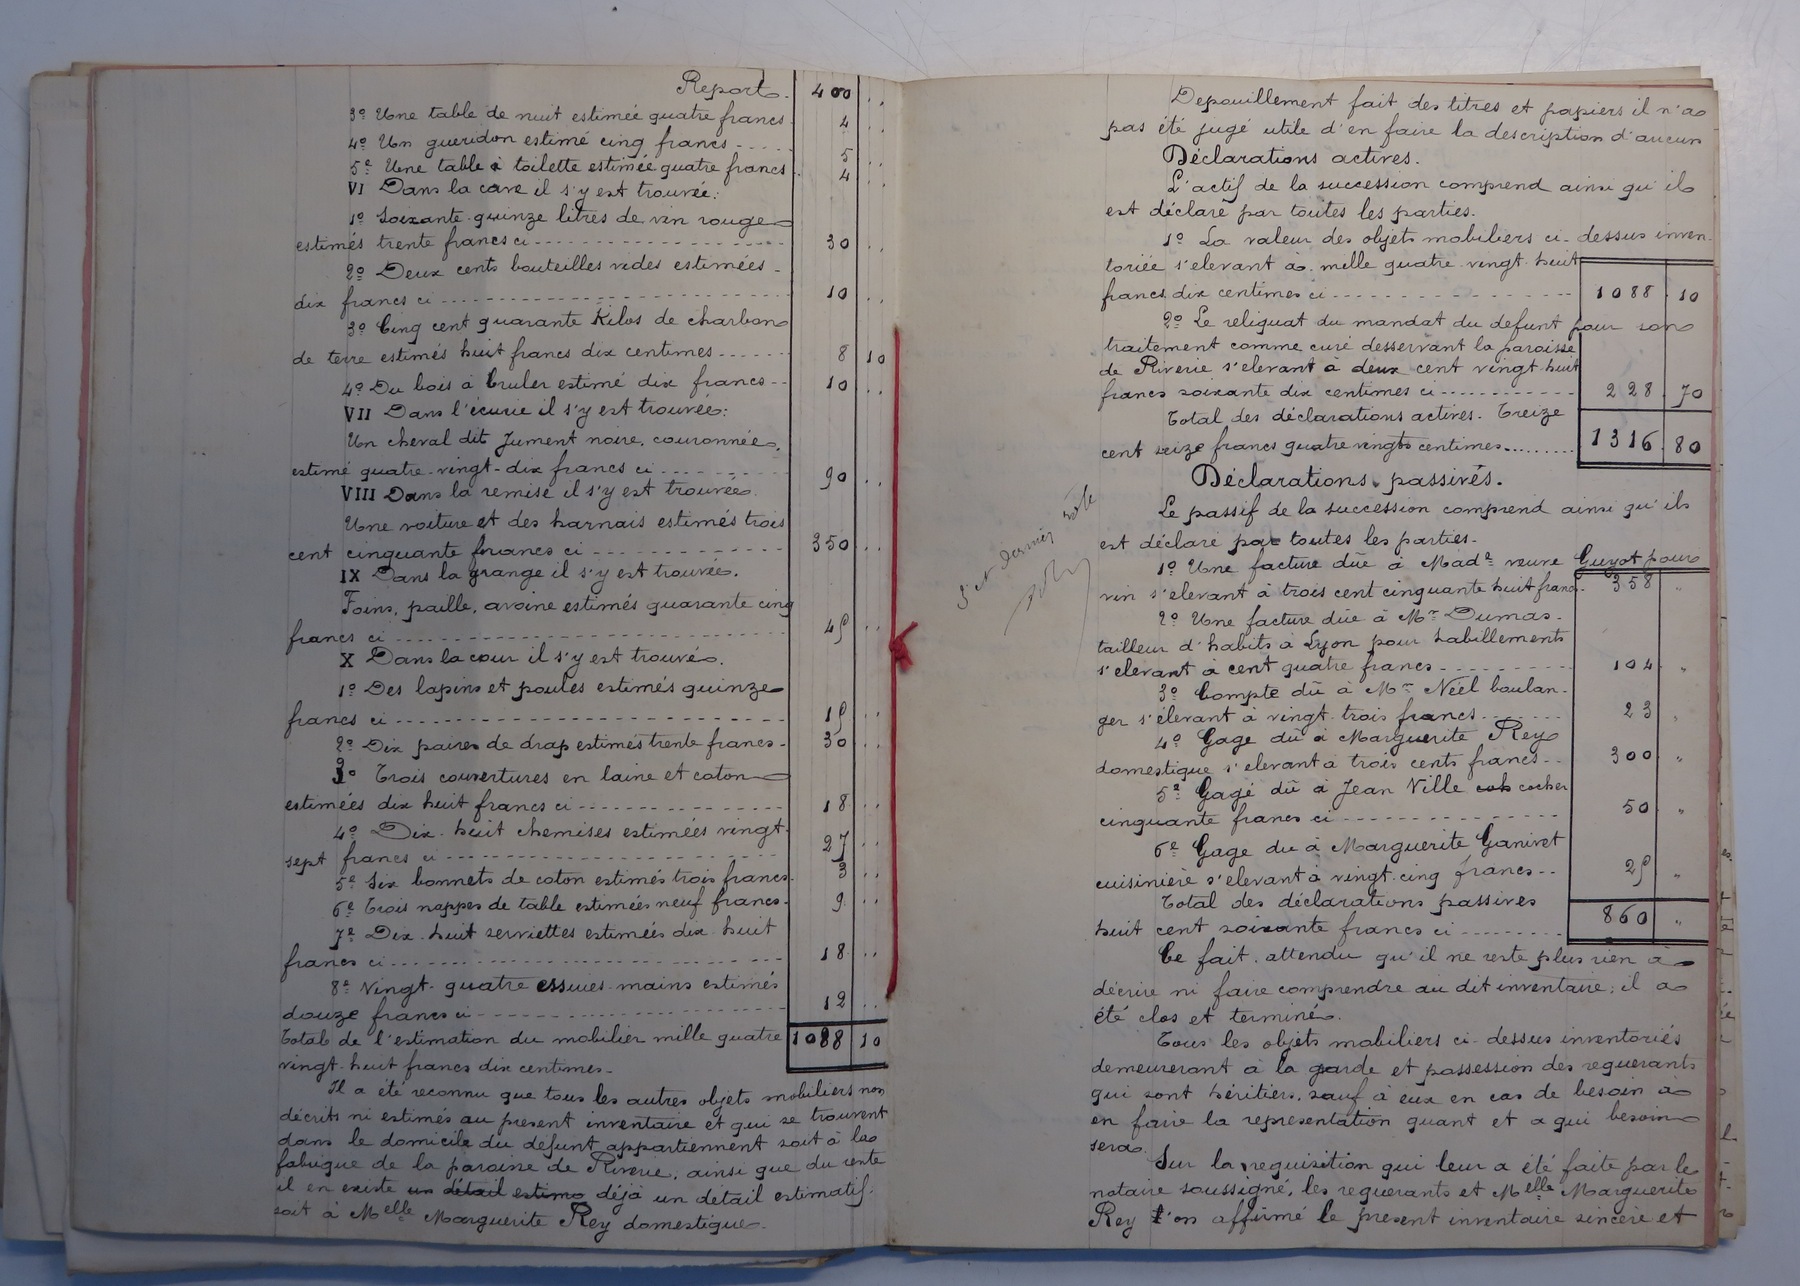 Report. 400 ..
3º Une table de nuit estimée quatre francs. 4 ..
4º Un gueridon estimé cinq francs ----- 5 ..
5e Une table à toilette estimée quatre francs. 4 ..
VI Dans la cave il s'y est trouvée:
1º Soixante-quinze litres de vin rouge
estimés trente francs ci ------ 30 ..
2º Deux cents bouteilles vides estimées -
dix francs ci ------ 10 ..
3º Cinq cent quarante Kilos de charbon
de terre estimés huit francs dix centimes ------ 8 10
4º Du bois à bruler estimé dix francs -- 10 ..
VII Dans l'écurie il s'y est trouvée:
Un cheval dit Jument noire, couronnée,
estimé quatre-vingt-dix francs ci ------ 90 ..
VIII Dans la remise il s'y est trouvée.
Une voiture et des harnais estimés trois
cent cinquante francs ci ------ 350 ..
IX Dans la grange il s'y est trouvée.
Foins, paille, avoine estimés quarante cinq
francs ci ------ 45 ..
X Dans la cour il s'y est trouvé.
1º Des lapins et poules estimés quinze
francs ci ------ 15 ..
2º Dix paires de drap estimés trente francs - 30 ..
3º Trois couvertures en laine et coton
estimées dix huit francs ci ------ 18 ..
4º Dix-huit chemises estimées vingt-
sept francs ci ------ 27 ..
5e Six bonnets de coton estimés trois francs. 3 ..
6e Trois nappes de table estimées neuf francs. 9 ..
7e Dix-huit serviettes estimées dix-huit
francs ci ------ 18 ..
8e Vingt-quatre essuies-mains estimés
douze francs ci ------ 12 ..
Total de l'estimation du mobilier mille quatre 1088 10
vingt-huit francs dix centimes.
Il a été reconnu que tous les autres objets mobiliers non
décrits ni estimés au present inventaire et qui se trouvent
dans le domicile du defunt appartiennent soit à la
fabrique de la paroisse de Riverie, ainsi que du reste
il en existe un détail estimo déjà un detail estimatif.
soit à Melle Marguerite Rey domestique.
Depouillement fait des titres et papiers il n'a
pas été jugé utile d'en faire la description d'aucun
Déclarations actives.
L'actif de la succession comprend ainsi qu'il
est déclaré par toutes les parties.
1º La valeur des objets mobiliers ci-dessus inven-
toriée s'elevant à mille quatre-vingt-huit
francs dix centimes ci ------ 1088 10
2º Le reliquat du mandat du defunt pour son
traitement comme curé desservant la paroisse
de Riverie s'elevant à deux cent vingt-huit
francs soixante dix centimes ci ------ 228 70
Total des déclarations actives. Treize
cent seize francs quatre vingts centimes ------ 1316 80
Déclarations passivés.
Le passif de la succession comprend ainsi qu'il
est déclaré par toutes les parties.
1º Une facture dûe à Made veuve Guyot pour
vin s'elevant à trois cent cinquante huit francs. 358 "
2º Une facture dûe à Mr Dumas-
tailleur d'habits à Lyon pour habillements
s'elevant à cent quatre francs ------ 104 "
3º Compte dû à Mr Néel boulan-
ger s'élevant à vingt-trois francs ------ 23 "
4º Gage dû à Marguerite Rey
domestique s'elevant à trois cents francs -- 300 "
5e Gage dû à Jean Ville coh cocher
cinquante francs ci ------ 50 "
6e Gage du à Marguerite Ganivet
cuisinière s'elevant à vingt-cinq francs -- 25 "
Total des déclarations passives
huit cent soixante francs ci ------ 860 "
Ce fait, attendu qu'il ne reste plus rien à
décrire ni faire comprendre au dit inventaire; il a
été clos et terminé.
Tous les objets mobiliers ci-dessus inventoriés
demeurerant à la garde et possession des requerants
qui sont héritiers, sauf à eux en cas de besoin à
en faire la representation quant et a qui besoin
sera.
Sur la requisition qui leur a été faite par le
notaire soussigné, les requerants et Melle Marguerite
Rey l'on affirmé le present inventaire sincère et
5 et dernier role